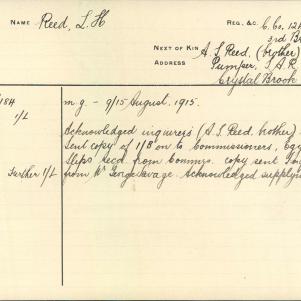 NAME Reed, L. H REG. &C. C Co. 12
3rd B
NEXT OF KIN A. S. Reed, (brother)
ADDRESS Pumper, S. A. R
Crystal Brook
184 m.g. - 9/15 August. 1915.
1/L
Acknowledged inquirers (A. S. Reed, brother)
Sent copy of 1/B on to Commissioners, Egy
Slips recd. from Commrs. copy sent
Further 1/L from Mr George Savage. Acknowledged supplying